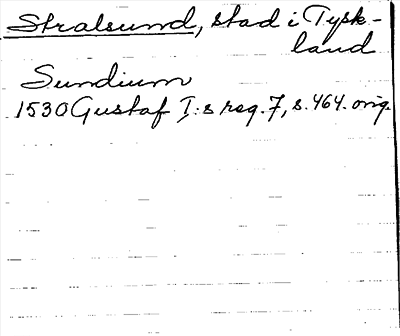 Stralsund, stad i Tysk-
land
Sundium
1530 Gustaf I:s reg. 7, s. 464. orig.